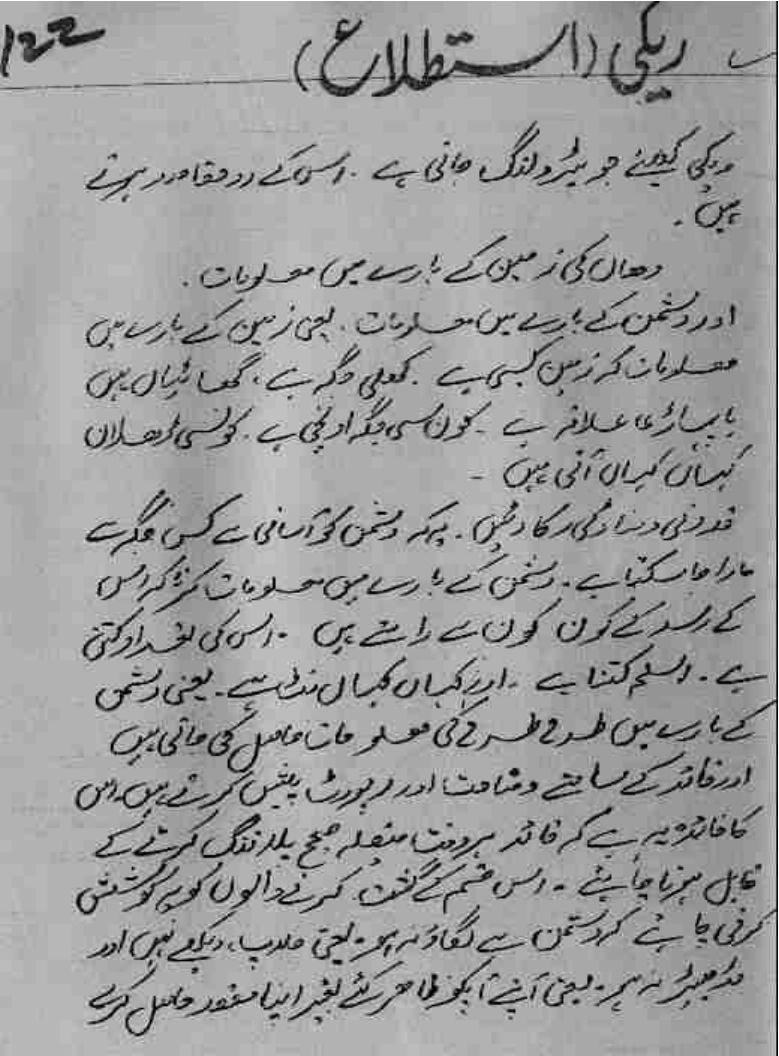 122
ریکی (استطلاع)
ریکی کیلئے جو پیٹرولنگ جاتی ہے ۔ اس کے دو مقاصد ہوتے
ہیں ۔
وھاں کی زمین کے بارے میں معلومات ۔
اور دشمن کے بارے میں معلومات ۔ یعنی زمین کے بارے میں
معلومات کہ زمین کیسی ہے ۔ کھلی جگہ ہے ، گھاٹیاں ہیں
یا پہاڑی علاقہ ہے ۔ کون سی جگہ اونچی ہے ۔ کونسی ڈھلان
کہاں کہاں آتی ہیں ۔
قدرتی و بناوٹی رکاوٹیں ۔ یہ کہ دشمن کو آسانی سے کس جگہ سے
مارا جا سکتا ہے ۔ دشمن کے بارے میں معلومات کرنا کہ اس
کے رسد کے کون کون سے راستے ہیں ۔ اس کی تعداد کتنی
ہے ۔ اسلحہ کتنا ہے ۔ اور کہاں کہاں ہے ۔ یعنی دشمن
کے بارے میں طرح طرح کی معلومات حاصل کی جاتی ہیں
اور قائد کے سامنے وضاحت اور رپورٹ پیش کرتے ہیں ۔ اس
کا فائدہ یہ ہے کہ قائد بروقت فیصلہ صحیح پلاننگ کرنے کے
قابل ہونا چاہئے ۔ اس قسم کے گشت کرنے والوں کو یہ کوشش
کرنی چاہئے کہ دشمن سے لگاؤ نہ ہو ۔ یعنی ملاپ ، دیکھے نہیں اور
مڈبھیڑ نہ ہو ۔ یعنی اپنے آپکو ظاھر کئے بغیر اپنا مقصد حاصل کرے